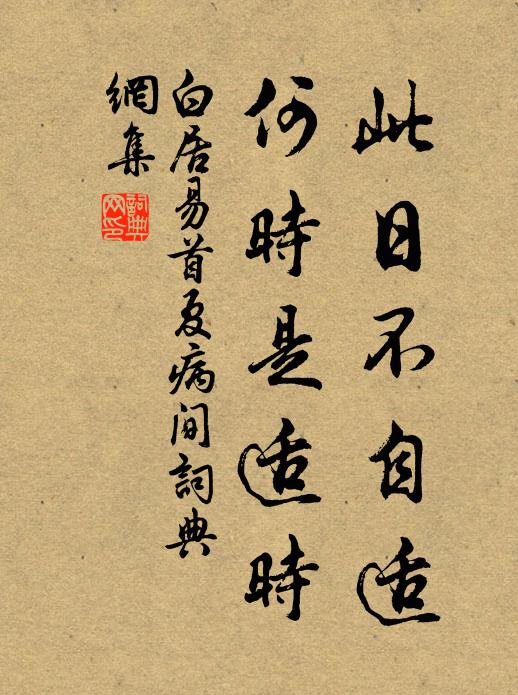 此日不自适
何時是适時
白居易首夏病间詞典
網集
詞典
网印